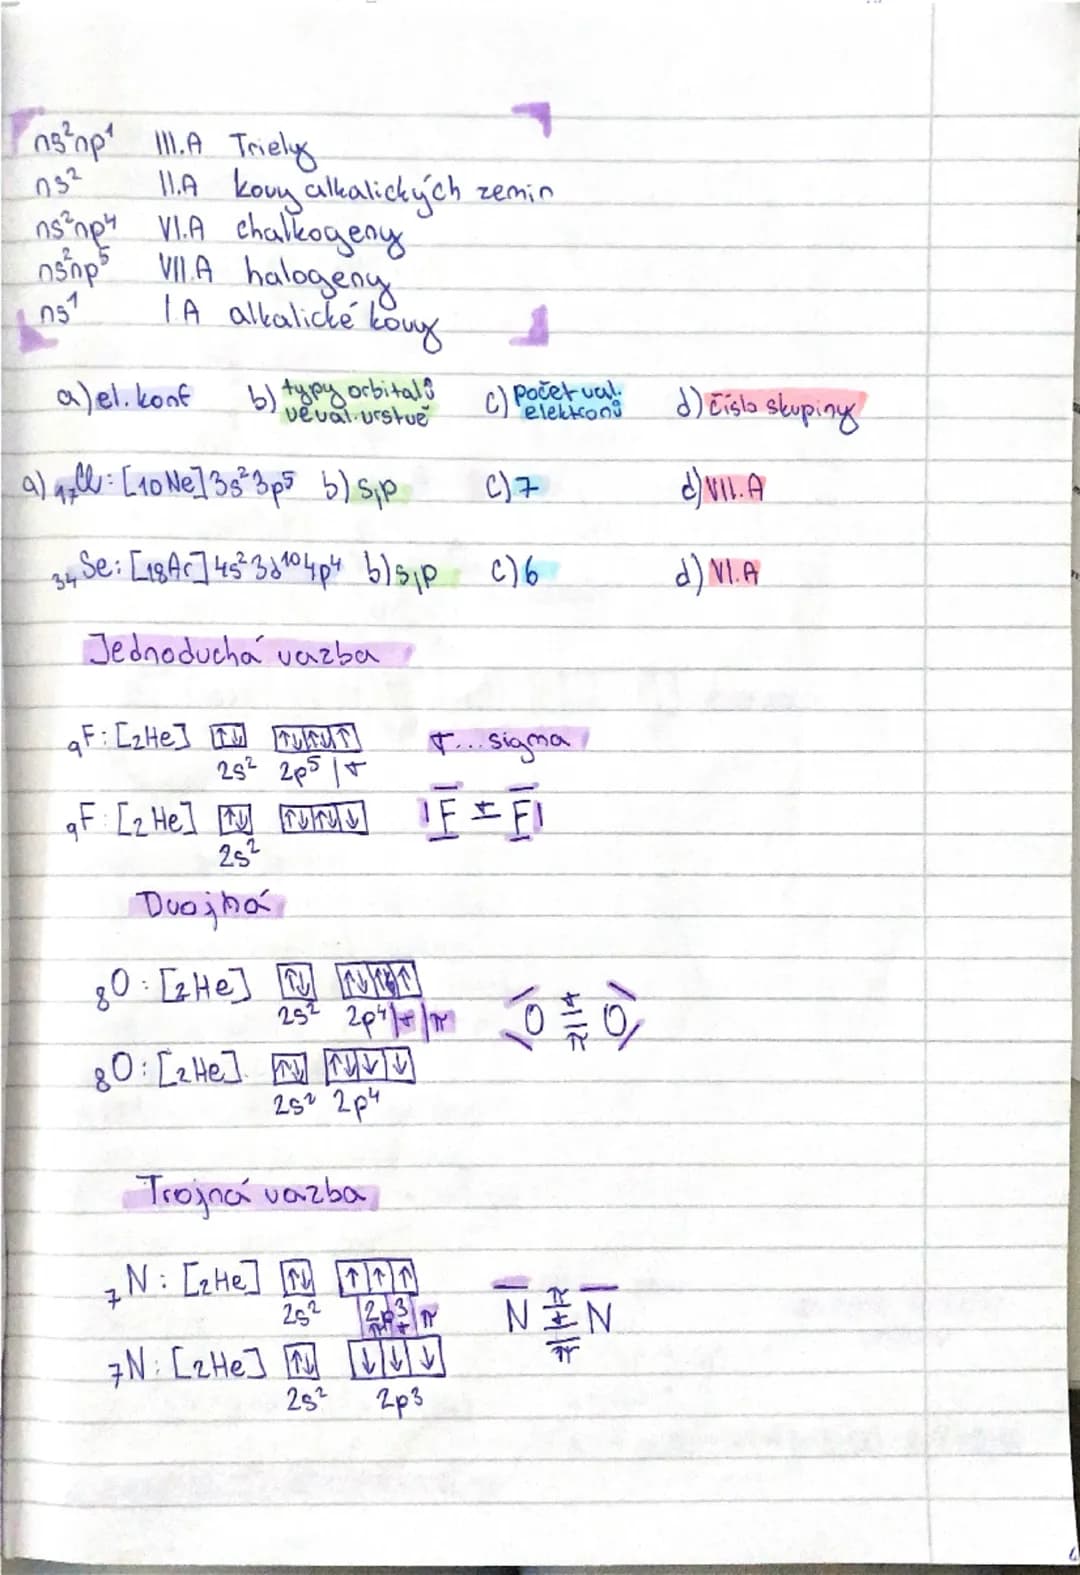 ns²np¹ III.A Triely
ns² II.A kovy alkalických zemin
ns²np⁴ VI.A chalkogeny
ns²np⁵ VII.A halogeny
ns¹ I.A alkalické kovy
a) el. konf b) typy orbitalů ve val. vrstvě c) Počet val. elektronů d) číslo skupiny
a) ₁₇Cl: [₁₀Ne] 3s² 3p⁵ b) s,p c) 7 d) VII.A
₃₄Se: [₁₈Ar] 4s² 3d¹⁰ 4p⁴ b) s,p c) 6 d) VI.A
Jednoduchá vazba
₉F: [₂He] ↑↓ ↑↓↑↓↑ σ...sigma
2s² 2p⁵ | σ
₉F: [₂He] ↑↓ ↑↓↑↓↓ |F σ F|
2s²
Dvojná
₈O: [₂He] ↑↓ ↑↓↑↑
2s² 2p⁴ | σ | π O σ π O
₈O: [₂He] ↑↓ ↑↓↓↓
2s² 2p⁴
Trojná vazba
₇N: [₂He] ↑↓ ↑↑↑
2s² 2p³ π σ π N π σ π N
₇N: [₂He] ↑↓ ↓↓↓
2s² 2p³